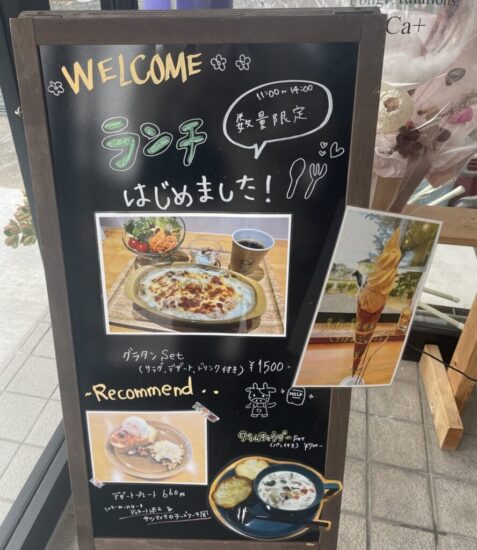 WELCOME
11:00~14:00
数量限定
ランチ
はじめました!
グラタン Set
(サラダ、デザート、ドリンク付き) ¥1500-
Recommend..
MILK
クラムチャウダー Set
(パン付き) ¥700-
デザートプレート 660円
Ca+